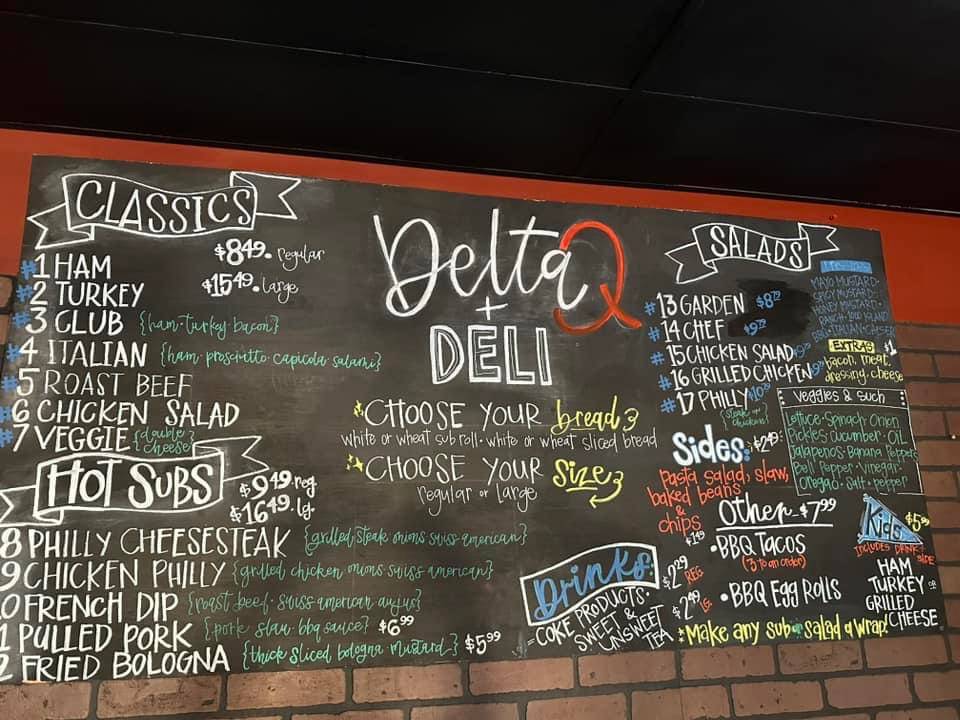 CLASSICS
$8.49. regular
$15.49. large
#1 HAM
#2 TURKEY
#3 CLUB {ham·turkey·bacon}
#4 ITALIAN {ham·prosciutto·capicola·salami}
#5 ROAST BEEF
#6 CHICKEN SALAD
#7 VEGGIE {double cheese}
HOT SUBS
$9.49.reg
$16.49.lg.
8 PHILLY CHEESESTEAK {grilled steak·onions·swiss·american}
9 CHICKEN PHILLY {grilled chicken·onions·swiss·american}
0 FRENCH DIP {roast beef·swiss·american·aujus}
1 PULLED PORK {pork·slaw·bbq sauce} $6.99
2 FRIED BOLOGNA {thick sliced bologna·mustard} $5.99
Delta Q
+
DELI
CHOOSE YOUR bread
white or wheat sub roll·white or wheat sliced bread
CHOOSE YOUR Size
regular or large
Drinks:
COKE PRODUCTS·
SWEET &
UNSWEET
TEA
$2.29
REG
$2.49
LG.
SALADS
#13 GARDEN $8.79
#14 CHEF $9.79
#15 CHICKEN SALAD
#16 GRILLED CHICKEN
#17 PHILLY $10.29
{steak or chicken}
MAYO·MUSTARD·
SPICY MUSTARD·
HONEY MUSTARD·
RANCH·1000 ISLAND
ITALIAN·CAESER
EXTRAS $1
bacon, meat,
dressing, cheese
veggies & such
Lettuce·Spinach·Onion
Pickles·Cucumber·OiL
Jalapenos·Banana Peppers
Bell Pepper·Vinegar·
Oregano·Salt·pepper
Sides: $2.49:
pasta salad, slaw,
baked beans
&
chips
$1.49
Other $7.99
·BBQ TACOS
(3 to an order)
·BBQ EGG ROLLS
Kids $5.99
INCLUDES DRINK+
SIDE
HAM
TURKEY OR
GRILLED
CHEESE
*Make any sub or salad a wrap!